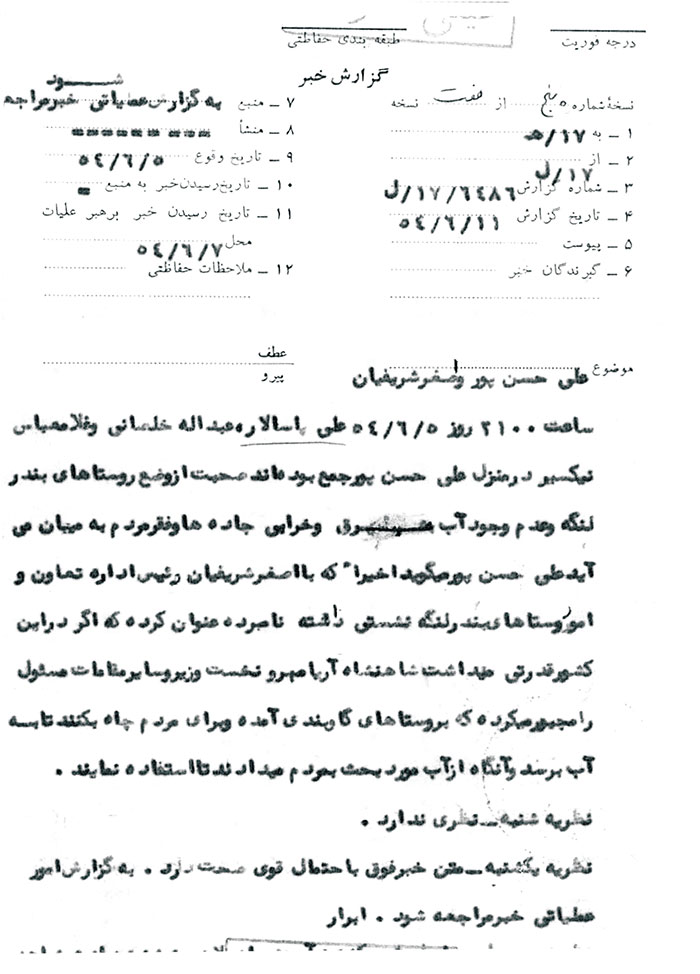 درجه فوریت
طبقه بندی حفاظتی
گزارش خبر
نسخهٔ شماره ۵ پنج از هفت نسخه
۱ ـ به ۱۷/ه‍
۲ ـ از ۱۷/ل
۳ ـ شماره گزارش ۶۴۸۶/۱۷/ل
۴ ـ تاریخ گزارش ۵۴/۶/۱۱
۵ ـ پیوست
۶ ـ گیرندگان خبر
۷ ـ منبع به گزارش عملیاتی خبر مراجعه شود
۸ ـ منشأ
۹ ـ تاریخ وقوع ۵۴/۶/۵
۱۰ ـ تاریخ رسیدن خبر به منبع
۱۱ ـ تاریخ رسیدن خبر برهبر عملیات
محل ۵۴/۶/۷
۱۲ ـ ملاحظات حفاظتی
عطف
پیرو
موضوع علی حسن پور واصغر شریفیان
ساعت ۲۱۰۰ روز ۵۴/۶/۵ علی پاسالار، عبداله خلصانی وغلامعباس
نیکسیر در منزل علی حسن پور جمع بوده‌اند صحبت از وضع روستاهای بندر
لنگه وعدم وجود آب برق وخرابی جاده ها وفقر مردم به میان می
آید علی حسن پور میگوید اخیرا" که با اصغر شریفیان رئیس اداره تعاون و
امور روستاهای بندر لنگه نشستی داشته نامبرده عنوان کرده که اگر در این
کشور قدرتی میداشت شاهنشاه آریا مهر و نخست وزیر و سایر مقامات مسئول
را مجبور میکرده که بروستاهای گاوبندی آمده وبرای مردم چاه بکنند تا به
آب برسد وآنگاه از آب مورد بحث بمردم میدادند تا استفاده نمایند .
نظریه شنبه ـ نظری ندارد .
نظریه یکشنبه ـ متن خبر فوق با احتمال قوی صحت دارد . به گزارش امور
عملیاتی خبر مراجعه شود . ابرار